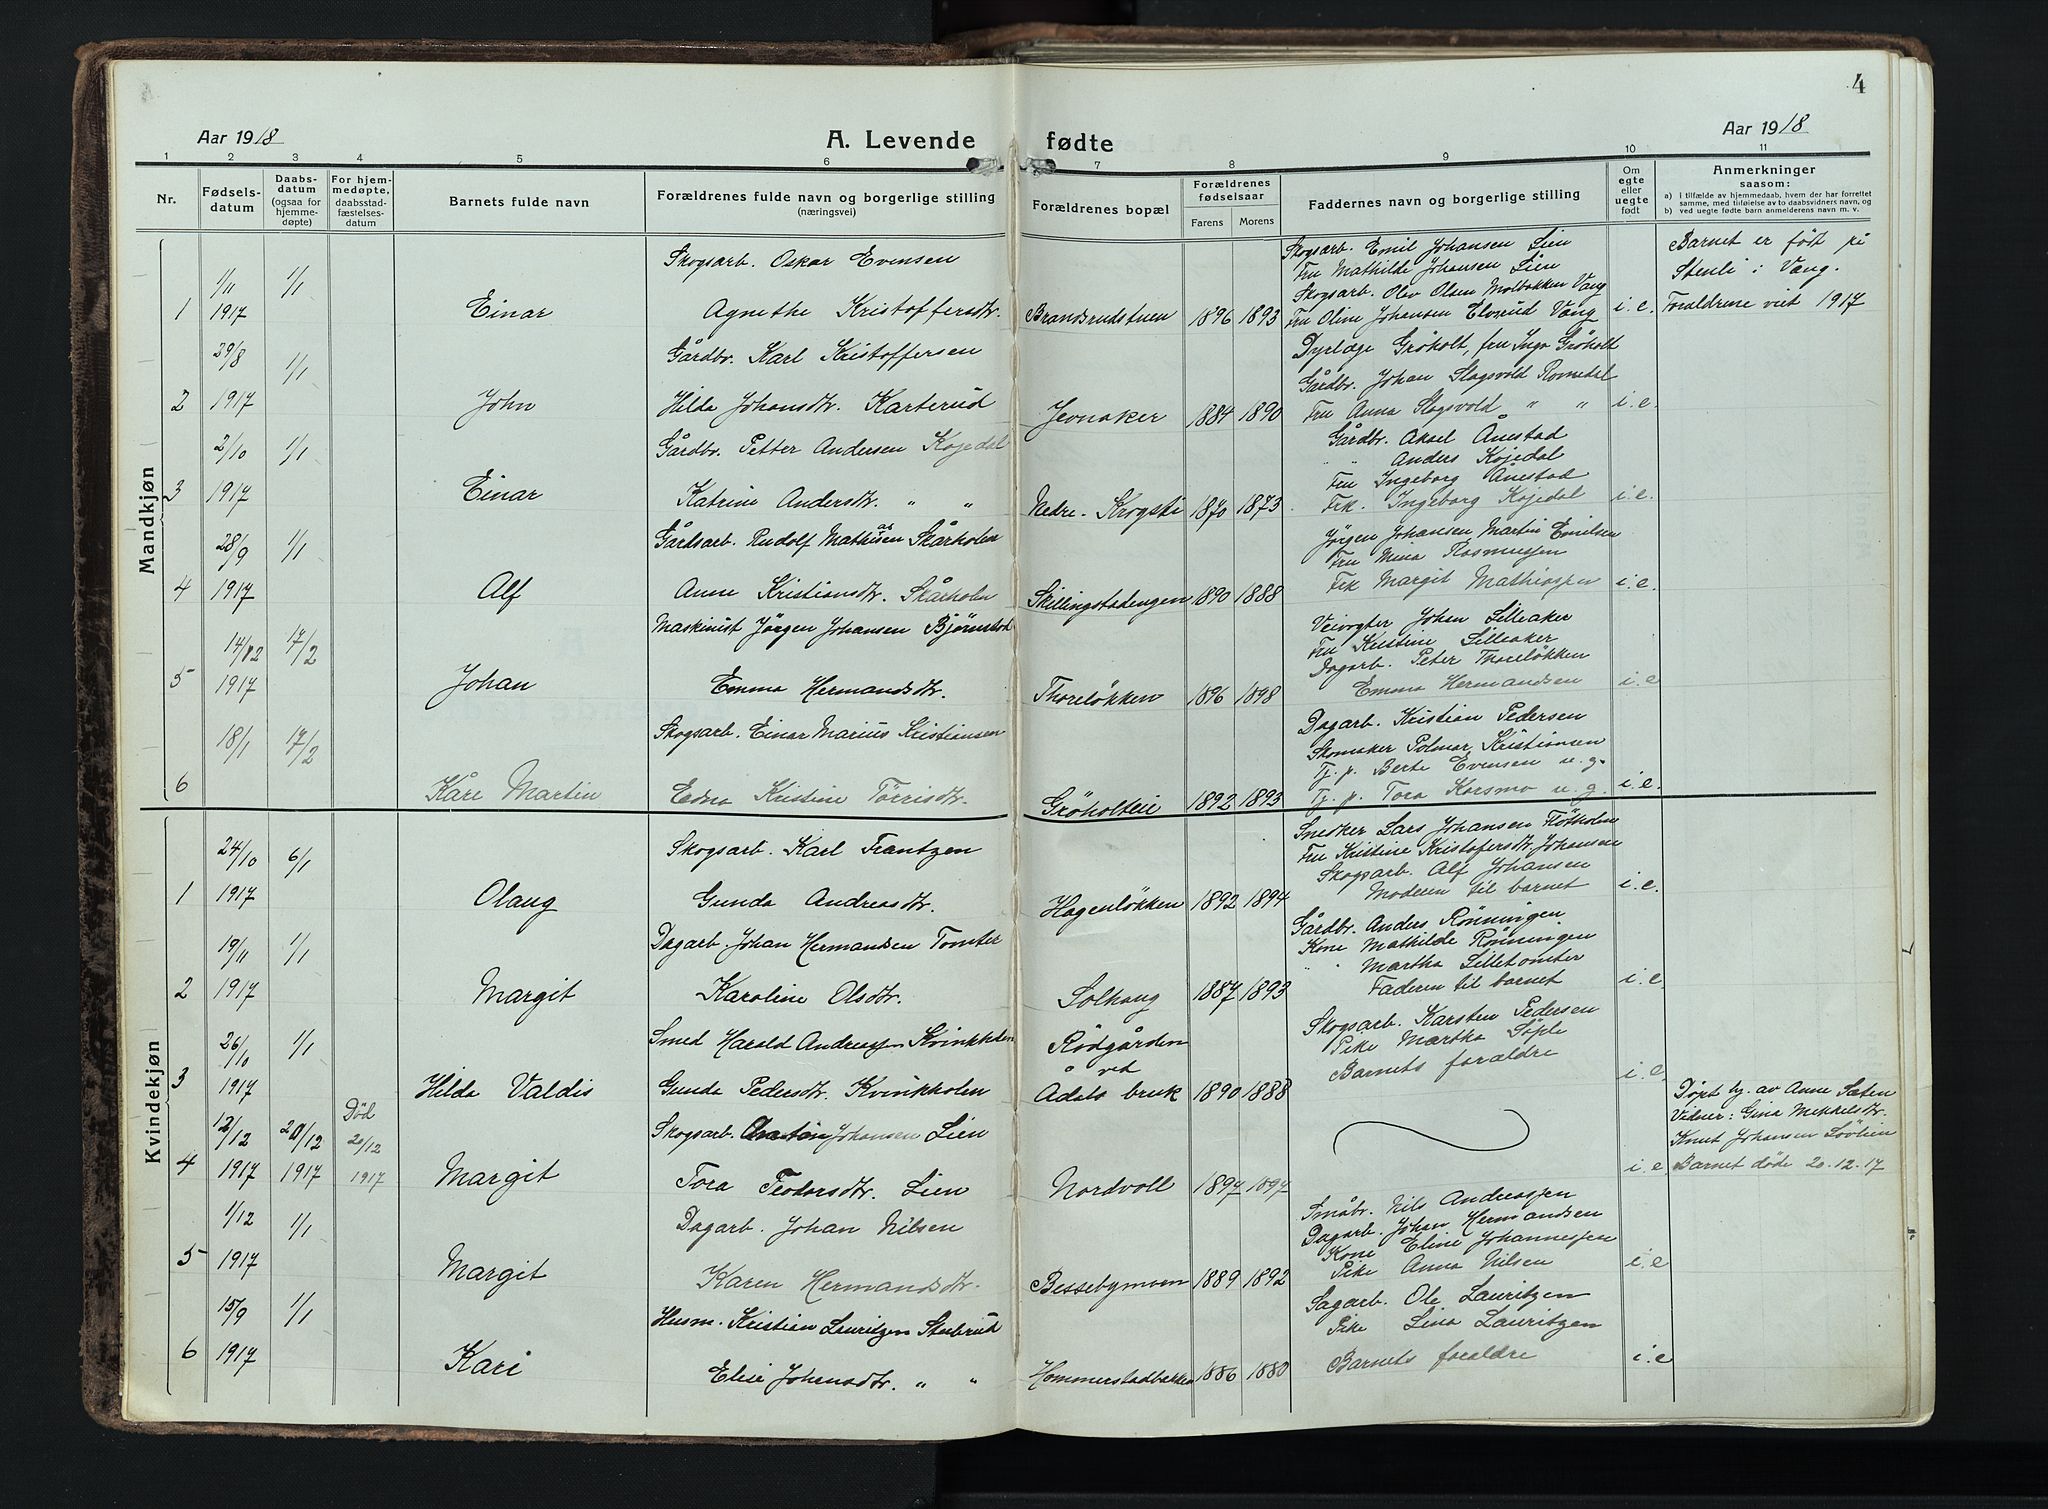 4
Aar 1918
A. Levende fødte
Aar 1918
1 2 3 4 5 6 7 8 9 10 11
Nr.
Fødsels-
datum
Daabs-
datum
(ogsaa for
hjemme-
døpte)
For hjem-
medøpte,
daabsstad-
fæstelses-
datum
Barnets fulde navn
Forældrenes fulde navn og borgerlige stilling
(næringsvei)
Forældrenes bopæl
Forældrenes
fødselsaar
Farens Morens
Faddernes navn og borgerlige stilling
Om
egte
eller
uegte
født
Anmerkninger
saasom:
a) I tilfælde av hjemmedaab, hvem der har forrettet
samme, med tilføielse av to daabsvidners navn, og
b) ved uegte fødte barn anmelderens navn m. v.
Mandkjøn
1 1/11 1917 1/1 Einar
Skogsarb. Oskar Evensen
Agnethe Kristoffersdtr.
Brandsrudstuen 1896 1893
Skogsarb. Emil Johansen Lien
Fru Mathilde Johansen Lien
Skogsarb. Olav Olsen Molbakken Vang
Fru Oline Johansen Elvsrud Vang
i.e.
Barnet er født på
Stenli i Vang.
Foraldrene viet 1917
2 29/8 1917 1/1 John
Gårdbr. Karl Kristoffersen
Hilda Johansdtr. Karterud
Jevnaker 1884 1890
Dyrlæge Grøholt, fru Inga Grøholt
Gårdbr. Johan Slagsvold Romedal
Fru Anna Slagsvold " "
i.e.
3 2/10 1917 1/1 Einar
Gårdbr. Petter Andersen Kojedal
Katrine Andersdtr. " "
Nedre-Krogsti 1870 1873
Gårdbr. Aksel Ånestad
" Anders Kojedal
Fru Ingeborg Ånestad
Frk. Ingeborg Kojedal
i.e.
4 28/9 1917 1/1 Alf
Gårdsarb. Rudolf Mathisen Skårholen
Anne Kristiansdtr. Skårholn
Skillingstadengen 1890 1888
Jørgen Johansen, Martin Emilsen
Fru Mina Rasmussen
Frk Margit Mathiassen
i.e.
5 14/12 1917 17/2 Johan
Maskinist Jørgen Johansen Bjørnstad
Emma Hermandsdtr.
Thoreløkken 1896 1898
Veivogter Johan Lilleaker
Fru Kristine Lilleaker
Dagarb. Peter Thoreløkken
Emma Hermandsen
i.e
6 18/1 17/2 Kåre Martin
Skogsarb. Einar Marius Kristiansen
Edna Kristine Tørrisdtr.
Grøholteie 1892 1893
Dagarb. Kristian Pedersen
Skomaker Polmar Kristiansen
Tj. p. Berte Evensen u. g.
Tj. p. Tora Korsmo u. g.
i.e.
Kvindekjøn
1 24/10 1917 6/1 Olaug
Skogsarb. Karl Frantzen
Gunda Andreasdtr.
Hagenløkken 1892 1894
Snedker Lars Johansen Fløtholen
Fru Kristine Kristofersdtr. Johansen
Skogsarb. Alf Johansen
Moderen til barnet
i.e.
2 19/11 1917 1/1 Margit
Dagarb. Johan Hermandsen Tomter
Karoline Olsdtr.
Solhaug 1887 1893
Gårdbr. Anders Rønningen
Kone Mathilde Rønningen
" Martha Lilletomter
Faderen til barnet
i.e
3 26/10 1917 1/1 Hilda Valdis
Smed Harald Andreassen Kvinkholen
Gunda Pedersdtr. Kvinkholen
Rødgården
ved
Ådals bruk 1890 1888
Skogsarb. Karsten Pedersen
Pike Martha Søple
Barnets foraldre
i.e.
4 12/12 1917 20/12 1917
Død
20/12
1917
Margit
Skogsarb. Johansen Lien
Tora Teodorsdtr. Lien
Nordvoll 1897 1897
i.e
Døpt hj. av Anne Sæten
Vidner: Gina Mikkelsdtr.
Knut Johansen Løvlien
Barnet døde 20.12.17
5 1/12 1917 1/1 Margit
Dagarb. Johan Nilsen
Karen Hermandsdtr.
Bessebymoen 1889 1892
Småbr. Nils Andreassen
Dagarb. Johan Hermandsen
Kone Eline Johannessen
Pike Anna Nilsen
i.e
6 15/9 1917 1/1 Kari
Husm. Kristian Lauritzen Stubrud
Elise Johansdtr. " "
Hommerstadbakken 1886 1880
Sagarb. Ole Lauritzen
Pike Lina Lauritzen
Barnets foraldre
i.e